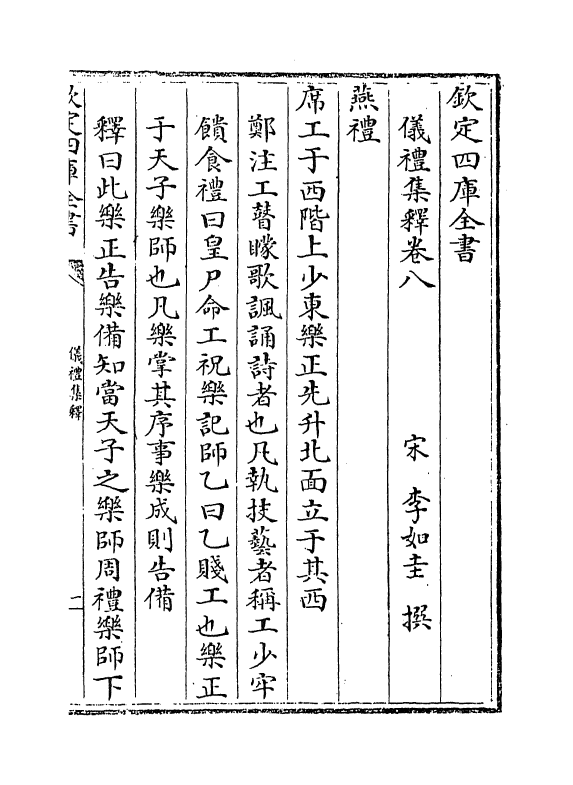 欽定四庫全書
儀禮集釋卷八
宋 李如圭 撰
燕禮
席工于西階上少東樂正先升北面立于其西
鄭注工瞽矇歌諷誦詩者也凡執技藝者稱工少牢
饋食禮曰皇尸命工祝樂記師乙曰乙賤工也樂正
于天子樂師也凡樂掌其序事樂成則告備
釋曰此樂正告樂備知當天子之樂師周禮樂師下
欽定四庫全書
儀禮集釋